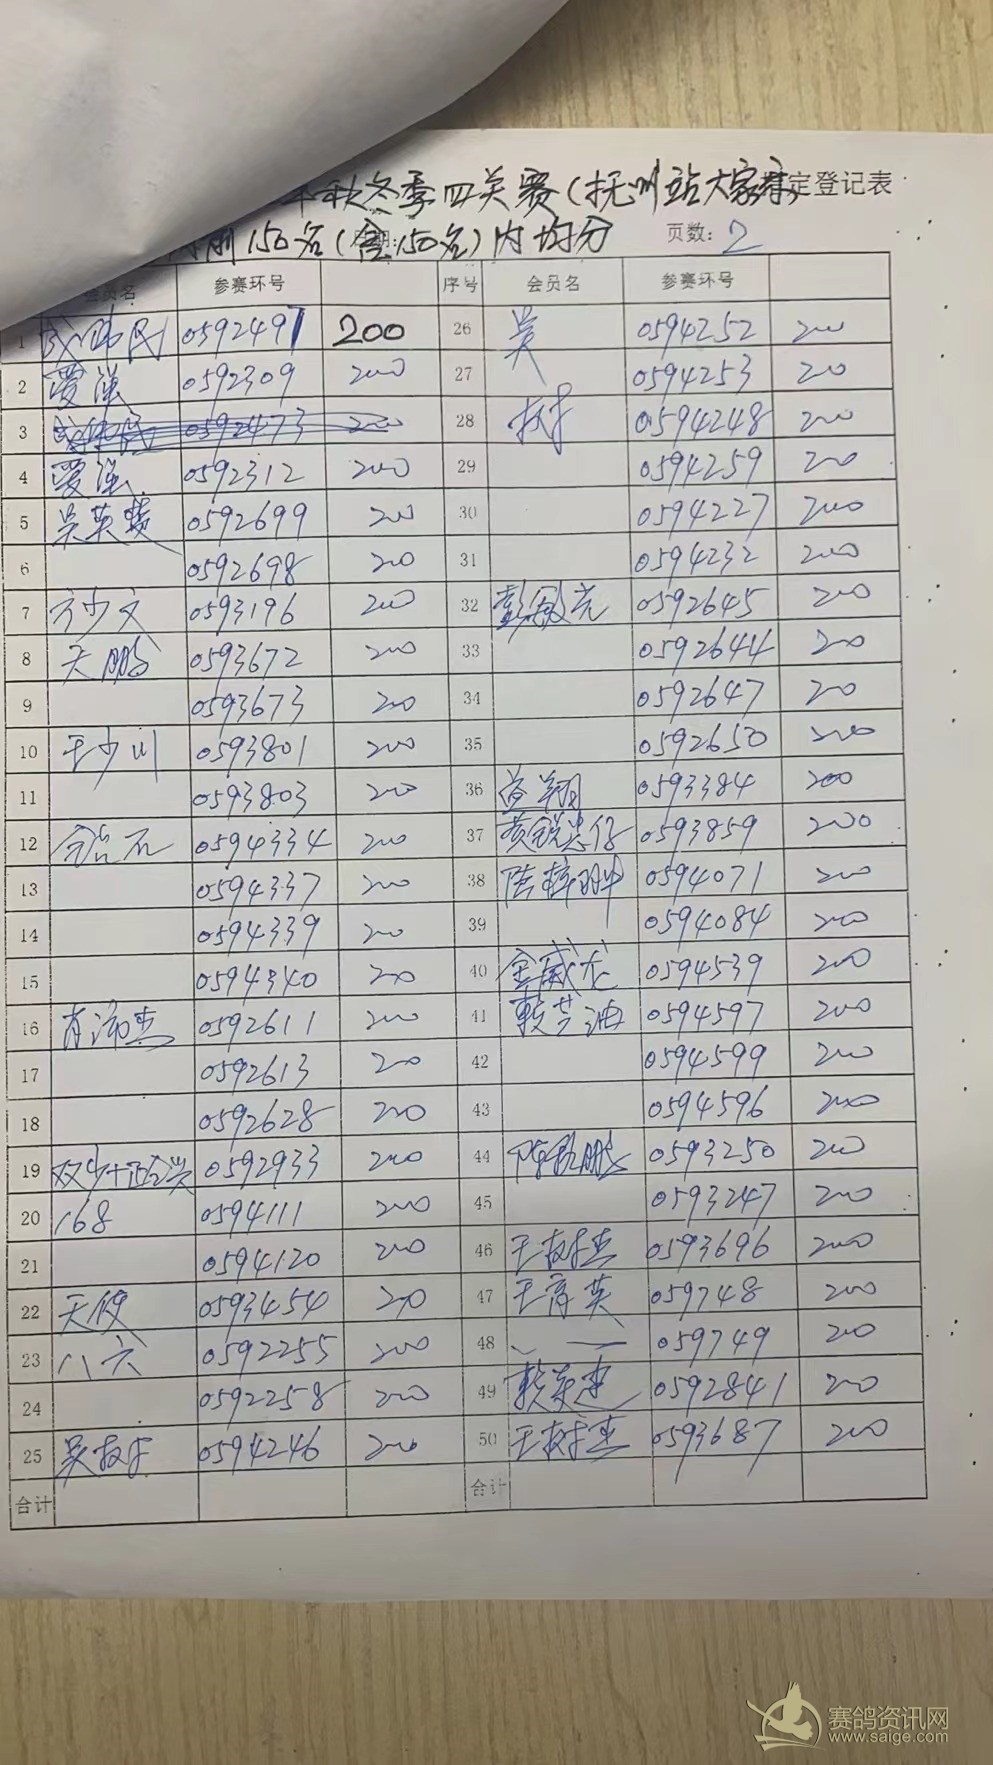 秋冬季四关赛(抚州站大家乐)指定登记表
前150名(含150名)内均分 页数: 2
会员名 参赛环号 序号 会员名 参赛环号
1 0592491 200 26 吴 0594252 200
2 爱强 0592309 200 27 0594253 200
3 0592473 200 28 0594248 200
4 爱强 0592312 200 29 0594259 200
5 吴英 0592699 200 30 0594227 200
6 0592698 200 31 0594232 200
7 方少文 0593196 200 32 彭敏 0592645 200
8 天鹏 0593672 200 33 0592644 200
9 0593673 200 34 0592647 200
10 王少川 0593801 200 35 0592650 200
11 0593803 200 36 0593384 200
12 0594334 200 37 黄锐忠仔 0593859 200
13 0594337 200 38 陈梓 0594071 200
14 0594339 200 39 0594084 200
15 0594340 200 40 金威龙 0594539 200
16 肖沛杰 0592611 200 41 0594597 200
17 0592613 200 42 0594599 200
18 0592628 200 43 0594596 200
19 0592933 200 44 0593250 200
20 168 0594111 200 45 0593247 200
21 0594120 200 46 王树杰 0593696 200
22 天使 0593454 200 47 王育英 059748 200
23 八六 0592255 200 48 059749 200
24 0592258 200 49 0592841 200
25 0594246 200 50 王树杰 0593687 200
合计 合计
赛鸽资讯网
www.saige.com